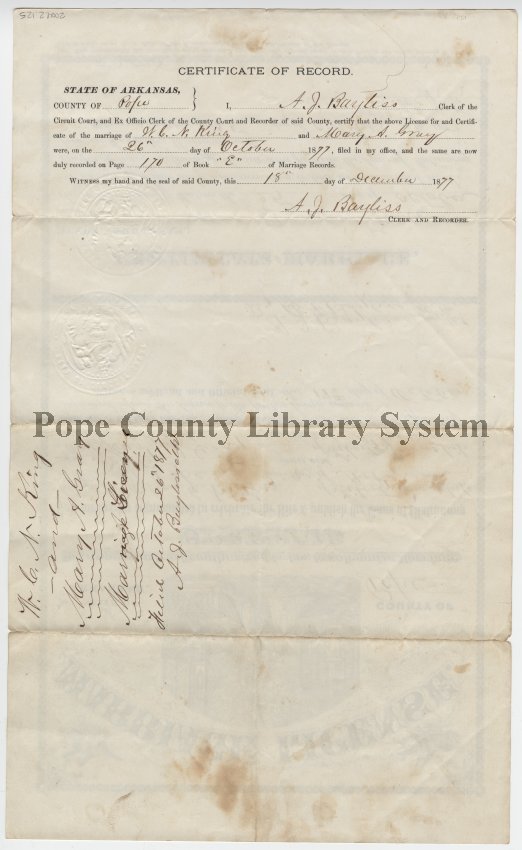 CERTIFICATE OF RECORD.
STATE OF ARKANSAS,
COUNTY OF Pope } I, A. J. Bayliss Clerk of the
Circuit Court, and Ex Officio Clerk of the County Court and Recorder of said County, certify that the above License for and Certifi-
cate of the marriage of W. C. N. King and Mary A. Gray
were, on the 26" day of October 1877, filed in my office, and the same are now
duly recorded on Page 170 of Book "E" of Marriage Records.
WITNESS my hand and the seal of said County, this 18" day of December 1877
A. J. Bayliss
CLERK AND RECORDER.
Pope County Library System
W. C. N. King
-and-
Mary A. Gray
Marriage License
Filed October 26" 1877
A. J. Bayliss clk